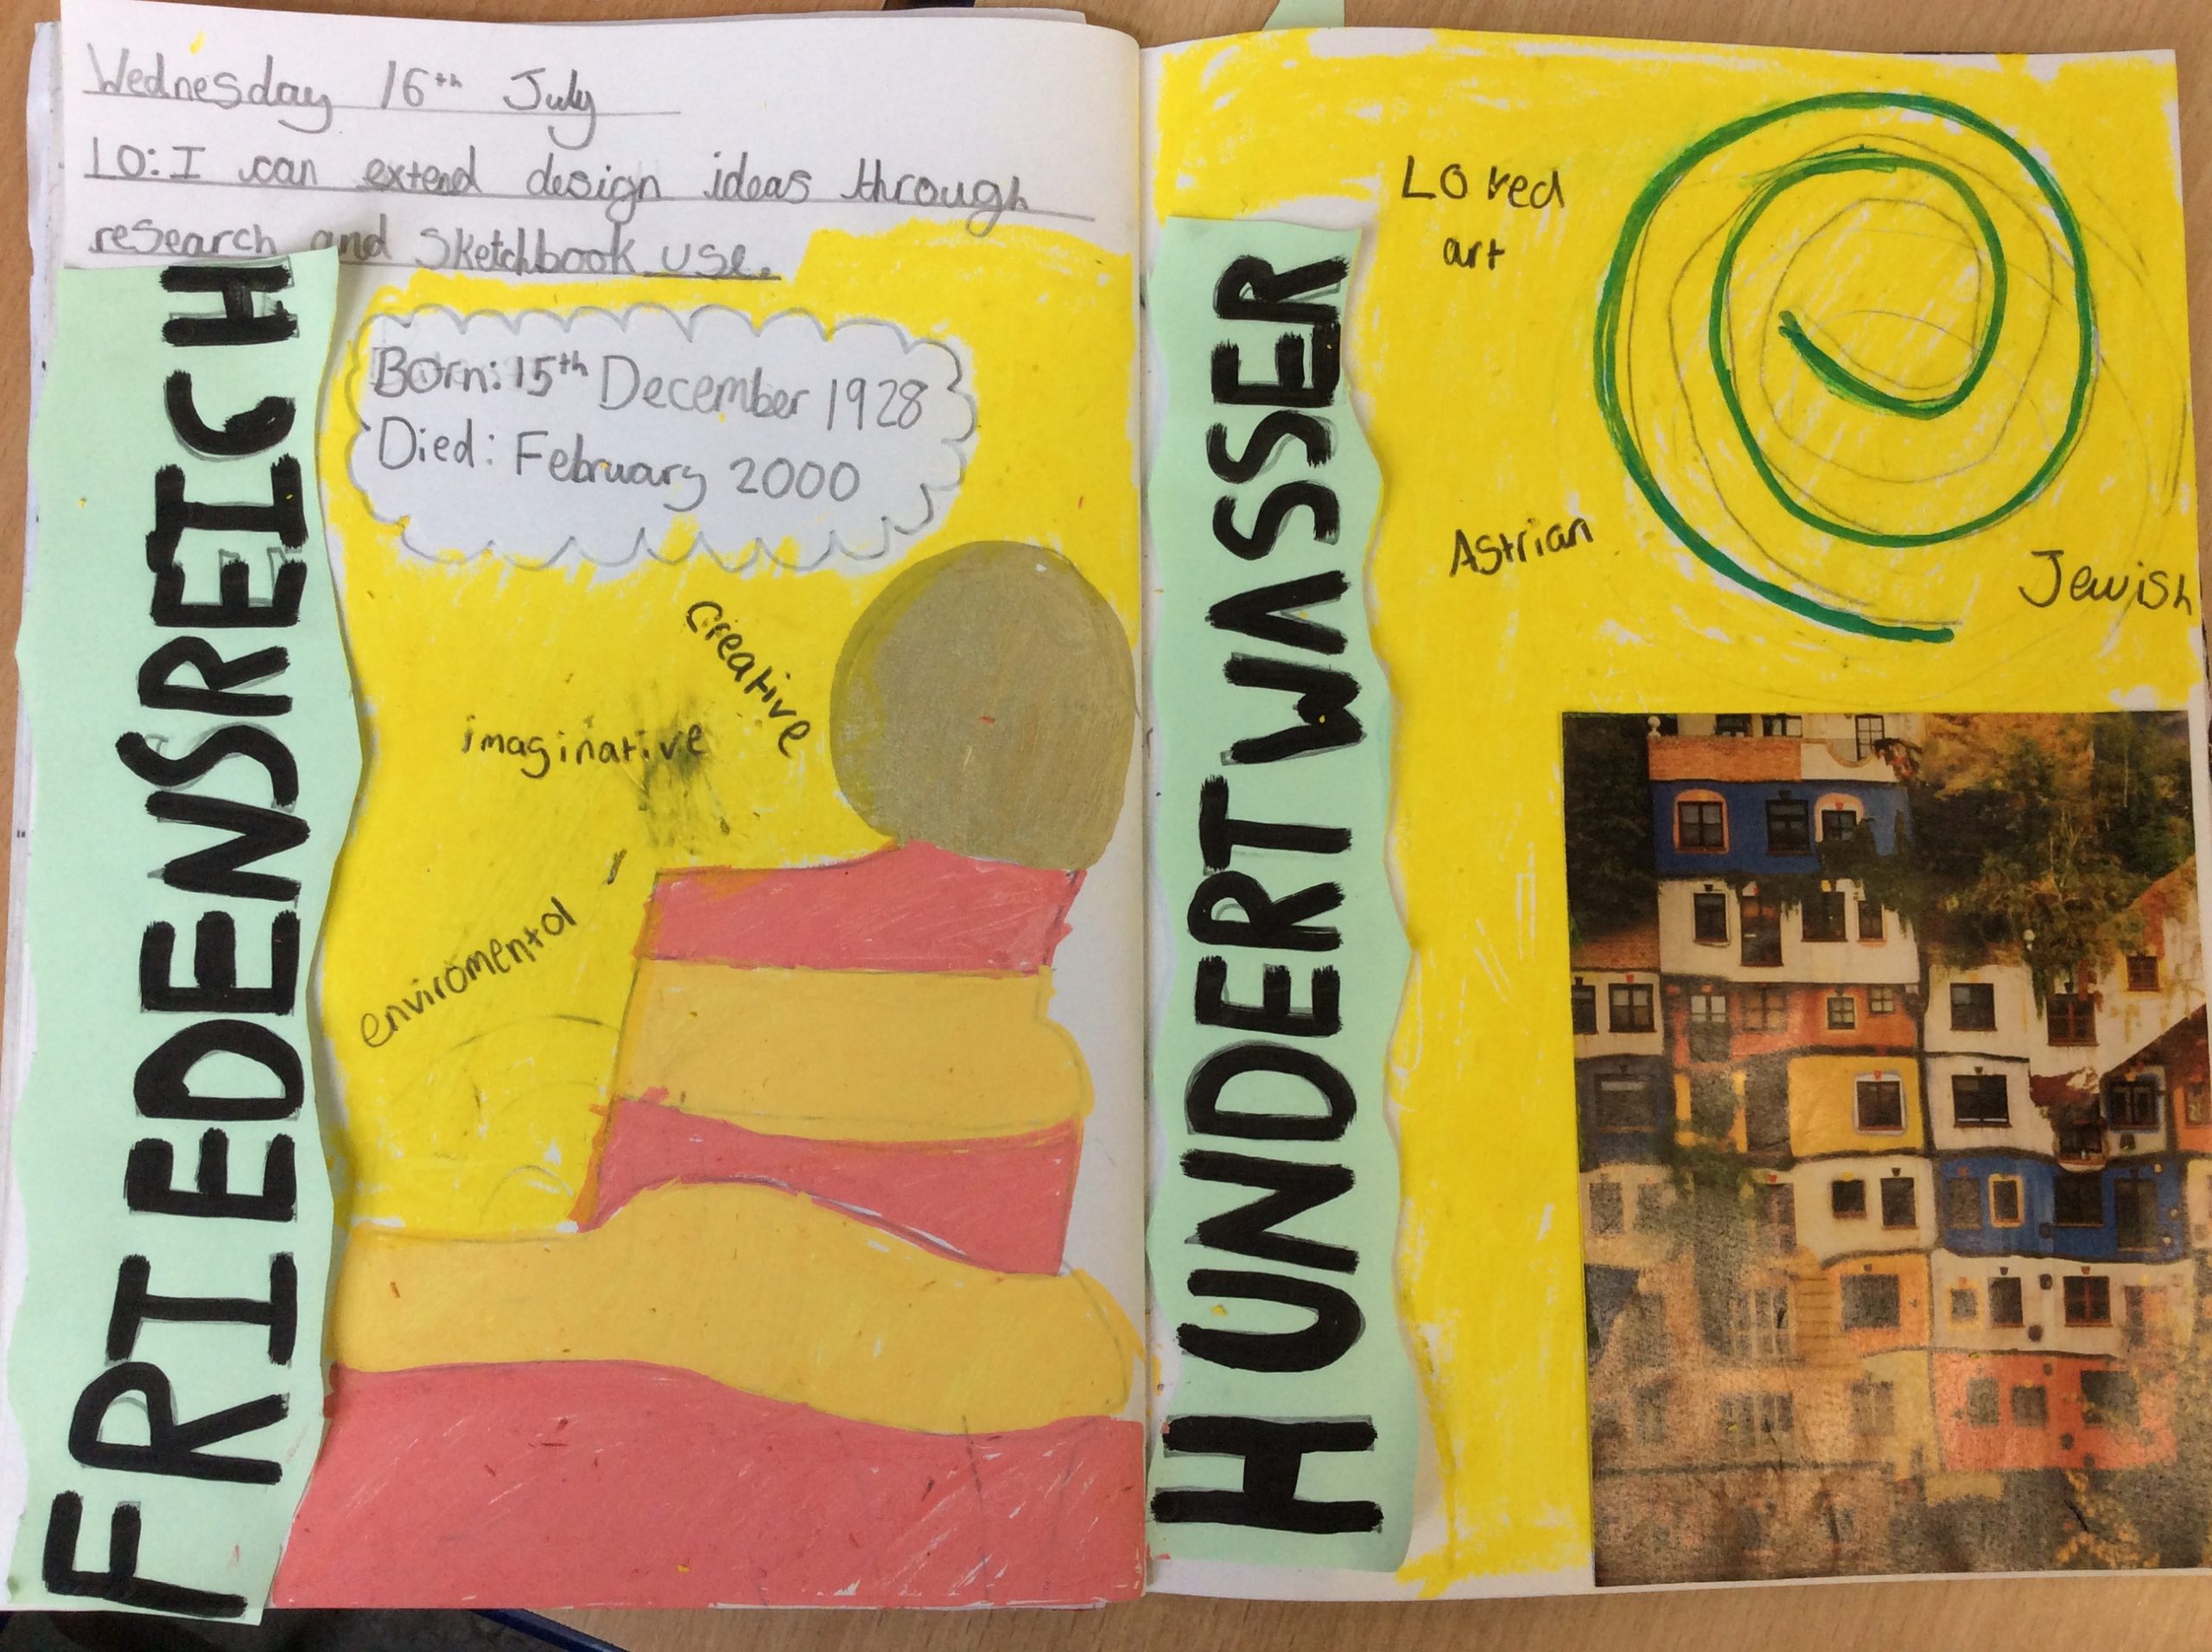 Wednesday 16th July
LO: I can extend design ideas through
research and sketchbook use.
FRIEDENSREICH
Born: 15th December 1928
Died: February 2000
creative
imaginative
enviromental
HUNDERTWASSER
Loved
art
Astrian
Jewish